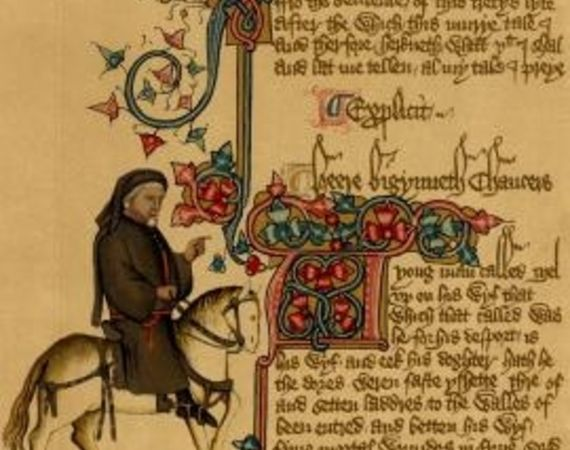 to the sentence of this tretys lyte
After the which this murye tale I
And therfore herkneth what yt I shal
And lat me tellen al my tale I preye
Explicit
Heere bigynneth Chaucers
A yong man called Mel
vp on his wyf that
Which that called was
he for his desport is
his wyf and eek his doghter hath he
the dores weren faste yshette Thre of
and setten laddres to the walles of
been entred and betten his wyf
fyue mortal woundes in fyue sond